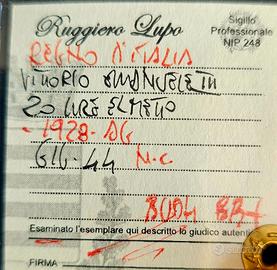 Ruggiero Lupo
Sigillo
Professionale
NIP 248
REGNO D'ITALIA
VITTORIO EMANUELE III
20 LIRE ELMETO
- 1928 - AG
GIG-44 N.C.
BB+
Esaminato l'esemplare qui descritto lo giudico autenti
FIRMA